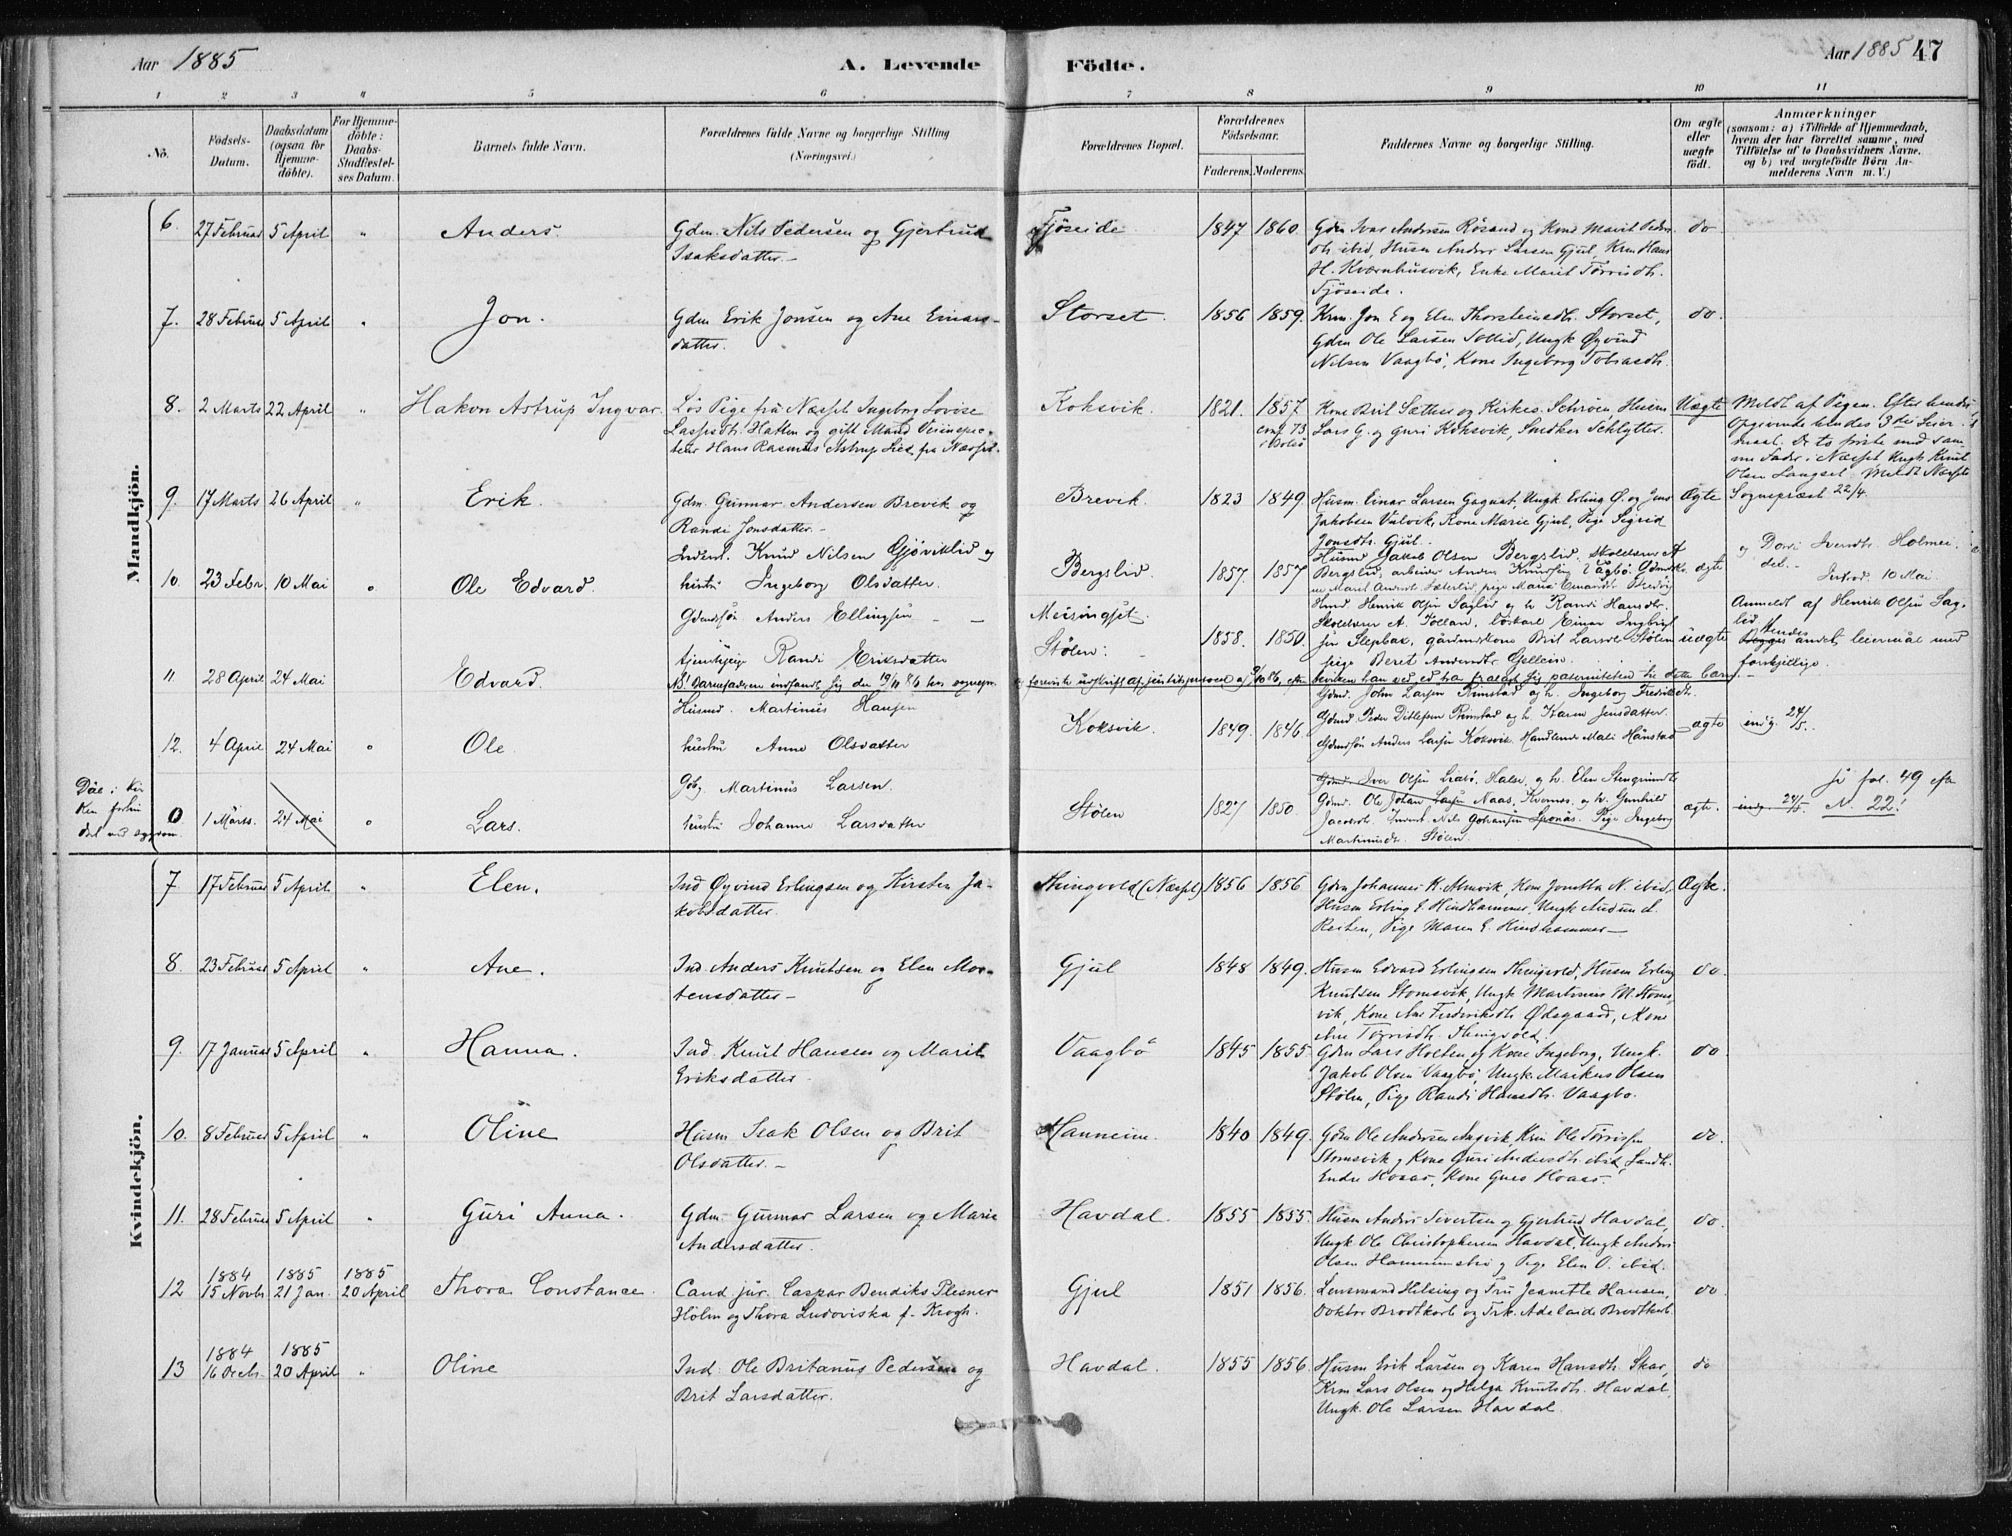 Aar 1885
A. Levende
Födte.
Aar 1885 47
1 2 3 4 5 6 7 8 9 10 11
No.
Födsels-
Datum.
Daabsdatum
(ogsaa for
Hjemme-
döbte).
For Hjemme-
döbte:
Daabs-
Stadfæstel-
ses Datum.
Barnets fulde Navn.
Forældrenes fulde Navne og borgerlige Stilling
(Næringsvei.)
Forældrenes Bopæl.
Forældrenes
Födselsaar.
Faderens. Moderens.
Faddernes Navne og borgerlige Stilling.
Om ægte
eller
uægte
födt.
Anmærkninger
(saasom: a) i Tilfælde af Hjemmedaab,
hvem der har forrettet samme, med
Tilföielse af to Daabsvidners Navne,
og b) ved uægtefödte Börn An-
melderens Navn m. V.)
Mandkjön.
6. 27 Februar 5 April " Anders. Gdm. Nils Pedersen og Gjertrud
Isaksdatter.—
Fjöseide 1847 1860 Gdm Ivar Andersen Rösand og Kone Marit Peders
dtr. ibid, Husm Anders Larsen Gjul, Krm Hans
H. Kvernhusvik, Enke Marit Törrisdtr.
Fjöseide.
do
7. 28 Februar 5 April " Jon. Gdm Erik Jonsen og Ane Einars-
datter.
Storset. 1856 1859. Krm. Jon E og Elen Thorsteinsdtr. Storset,
Gdm Ole Larsen Sollid, Ungk Øyvind
Nilsen Vaagbö, Kone Ingeborg Tobiasdtr.
do.
8. 2 Marts 22 April " Hakon Astrup Ingvar. Lös Pige fra Næsset Ingeborg Lovise
Lassesdtr. Hatten og gift Mand Veiinspec-
teur Hans Rasmus Astrup Lied fra Næsset.
Koksvik. 1821. 1857
conf 73
Kone Brit Sæther og Kirkes. Schröen, Husm
Lars G. og Guri Koksvik, Snedker Schlytter.
Uægte
Meldt af Pigen. Efter hendes
Opgivende hendes 3die Leier-
maal. De to förste med sam-
me Fader i Næsset Ungk Knut
Olsen Langset. Meldt Næssets
Sognepræst 22/4.
9. 17 Marts 26 April " Erik. Gdm. Gunnar Andersen Brevik og
Randi Jonsdatter.—
Brevik 1823 1849. Husm. Einar Larsen Gagnat, Ungk Erling Ø. og Jens
Jakobsen Vulvik, Kone Marie Gjul, Pige Sigrid
Jonsdtr. Gjul.
Ægte
10. 23 Febr. 10 Mai " Ole Edvard. Inderst. Knud Nilsen Gjöviklid og
hustru Ingeborg Olsdatter.
Bergslid. 1857. 1857 Husmd Jakob Olsen Bergslid, Skolelærer A
Bergslid, arbeider Anders Knudsen Vaagbö
ægte
10 Mai.
11 28 April 24 Mai Edvard. Gdmdsön. Anders Ellingsen
tjenestpige Randi Eriksdatter
Meisingset.
Stölen. 1858. 1850. Husmd Henrik Olsen Saglid og h. Randi Hansdtr.
Skolelærer A. Tolland, löskarl Einar Ingbrigt-
sen Slepbak, gårdmdskone Brit Larsdtr Stölen
pige Beret Andersdtr. Gullein.
uægte
Anmeldt af Henrik Olsen Sag-
lid. Hendes andet leiermål med
forskjellige.
NB! Barnefaderen indfandt sig den 19/11 86 hos sognepr.
12. 4 April 24 Mai " Ole. Husmd. Martinus Hansen
hustru Anne Olsdatter
Koksvik. 1849. 1846. Gdmd. John Larsen Rimstad og h. Ingeborg Fredriksdtr.
Gdmd Peder Ditlefsen Rimstad og h. Karen Jensdatter.
Gdmdsön Anders Larsen Koksvik. Handlende Mali Hånstad
ægte indg. 24/5.
0 1 Märts. 24 Mai " Lars. Gbrg. Martinus Larsen.
hustru Johanne Larsdatter
Stölen 1827 1850 Gdmd. Iver Olsen Liasö, Halse, og h. Elen Stengrundt
Gdmd. Ole Johan Larsen Naas, Kvernes, og h. Gunhild
Jacobsdt. Inderst. Nils Johansen Sponås. Pige Ingeborg
Martinusdt. Stölen.
ægte. indg. 24/5 N. 22!
Kvindekjön.
7 17 Februar 5 April. " Elen. Ind Øyvind Erlingsen og Kirsten Ja-
kobsdatter.
Thingvold (Næsset) 1856 1856 Gdm Johannes K. Almvik, Kone Jonetta N. ibid,
Husm Erling E. Hindhammer, Ungk Audun L.
Resten, Pige Maren E. Hindhammer—
Ægte.
8. 23 Februar 5 April " Ane. Ind. Anders Knutsen og Elen Mor-
tensdatter—
Gjul 1848 1849. Husm Edvard Erlingsen Thingvold, Husm Erling
Knutsen Stomsvik, Ungk Martinus M. Stoms-
vik, Kone Ane Frederiksdtr. Ødegaard, Kone
Ane Törrisdtr. Thingvold.
do.
9. 17 Januar 5 April " Hanna. Ind. Knut Hansen og Marit
Eriksdatter.
Vaagbö 1845 1855 Gdm Lars Holten og Kone Ingeborg, Ungk.
Jakob Olsen Vaagbö, Ungk Markus Olsen
Stölen, Pige Randi Hansdtr. Vaagbo.
do
10. 8 Februar 5 April " Oline Husm Isak Olsen og Brit
Olsdatter.—
Hanneim. 1840 1849. Gdm Ole Andersen Angvik, Krm Ole Törrissen
Stomsvik og Kone Guri Andersdtr. ibid, Landh.
Endre Hoaas, Kone Guro Hoaas.
do.
11. 28 Februar 5 April " Guri Anna. Gdm. Gunnar Larsen og Marie
Andersdatter.
Havdal. 1855 1855. Husm Anders Sivertsen og Gjertrud Havdal,
Ungk Ole Christophersen Havdal, Ungk Anders
Olsen Hammersbö og Pige Elen O. ibid.
do.
12 1884 15 Novbr 1885 21 Jan. 1885 20 April Thora Constance. Cand. jur. Caspar Bendiks Plesner
Holm og Thora Ludoviska f. Krogh.
Gjul 1851 1856. Lensmand Helsing og Fru Jeanette Hansen,
Doktor Brodtkorb og Frk. Adelaide Brodtkorb.
do
13 1884 16 Decbr. 1885 20 April " Oline Ind. Ole Britanus Pedersen og
Brit Larsdatter.
Havdal. 1855 1856. Husm Erik Larsen og Karen Hansdtr. Skar,
Krm Lars Olsen og Helga Knutsdtr. Havdal,
Ungk. Ole Larsen Havdal.
do